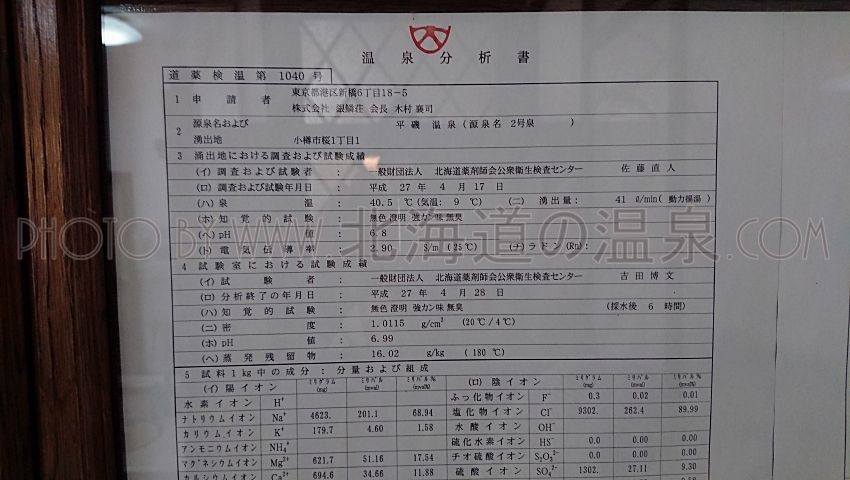 温泉分析書
道薬検温第 1040 号
1 申請者 東京都港区新橋6丁目18-5
株式会社 銀鱗荘 会長 木村襄司
2 源泉名および 平磯 温泉(源泉名 2号泉 )
湧出地 小樽市桜1丁目1
3 湧出地における調査および試験成績
(イ)調査および試験者 : 一般財団法人 北海道薬剤師会公衆衛生検査センター 佐藤直人
(ロ)調査および試験年月日 : 平成 27 年 4 月 17 日
(ハ)泉温 : 40.5 ℃(気温: 9 ℃) (ニ) 湧出量: 41 ℓ/min( 動力揚湯 )
(ホ)知覚的試験 : 無色 澄明 強カン味 無臭
(ヘ)pH値 : 6.8
(ト)電気伝導率 : 2.90 S/m (25℃) (チ)ラドン(Rn):
4 試験室における試験成績
(イ)試験者 : 一般財団法人 北海道薬剤師会公衆衛生検査センター 吉田博文
(ロ)分析終了の年月日 : 平成 27 年 4 月 28 日
(ハ)知覚的試験 : 無色 澄明 強カン味 無臭 (採水後 6 時間)
(ニ)密度 : 1.0115 g/cm³ (20℃/4℃)
(ホ)pH値 : 6.99
(ヘ)蒸発残留物 : 16.02 g/kg ( 180 ℃)
5 試料1kg中の成分:分量および組成
(イ)陽イオン ミリグラム(mg) ミリバル(mval) ミリバル%(mval%) (ロ)陰イオン ミリグラム(mg) ミリバル(mval) ミリバル%(mval%)
水素イオン H⁺ ふっ化物イオン F⁻ 0.3 0.02 0.01
ナトリウムイオン Na⁺ 4623. 201.1 68.94 塩化物イオン Cl⁻ 9302. 262.4 89.99
カリウムイオン K⁺ 179.7 4.60 1.58 水酸イオン OH⁻
アンモニウムイオン NH₄⁺ 硫化水素イオン HS⁻ 0.0 0.00 0.00
マグネシウムイオン Mg²⁺ 621.7 51.16 17.54 チオ硫酸イオン S₂O₃²⁻ 0.0 0.00 0.00
カルシウムイオン Ca²⁺ 694.6 34.66 11.88 硫酸イオン SO₄²⁻ 1302. 27.11 9.30
PHOTO BY WWW.北海道の温泉.COM